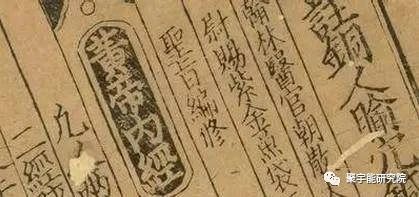 註銅人腧穴
翰林醫官朝散
尉賜紫金魚袋
聖旨編修
黃帝內經
二經
聚宇能研究院